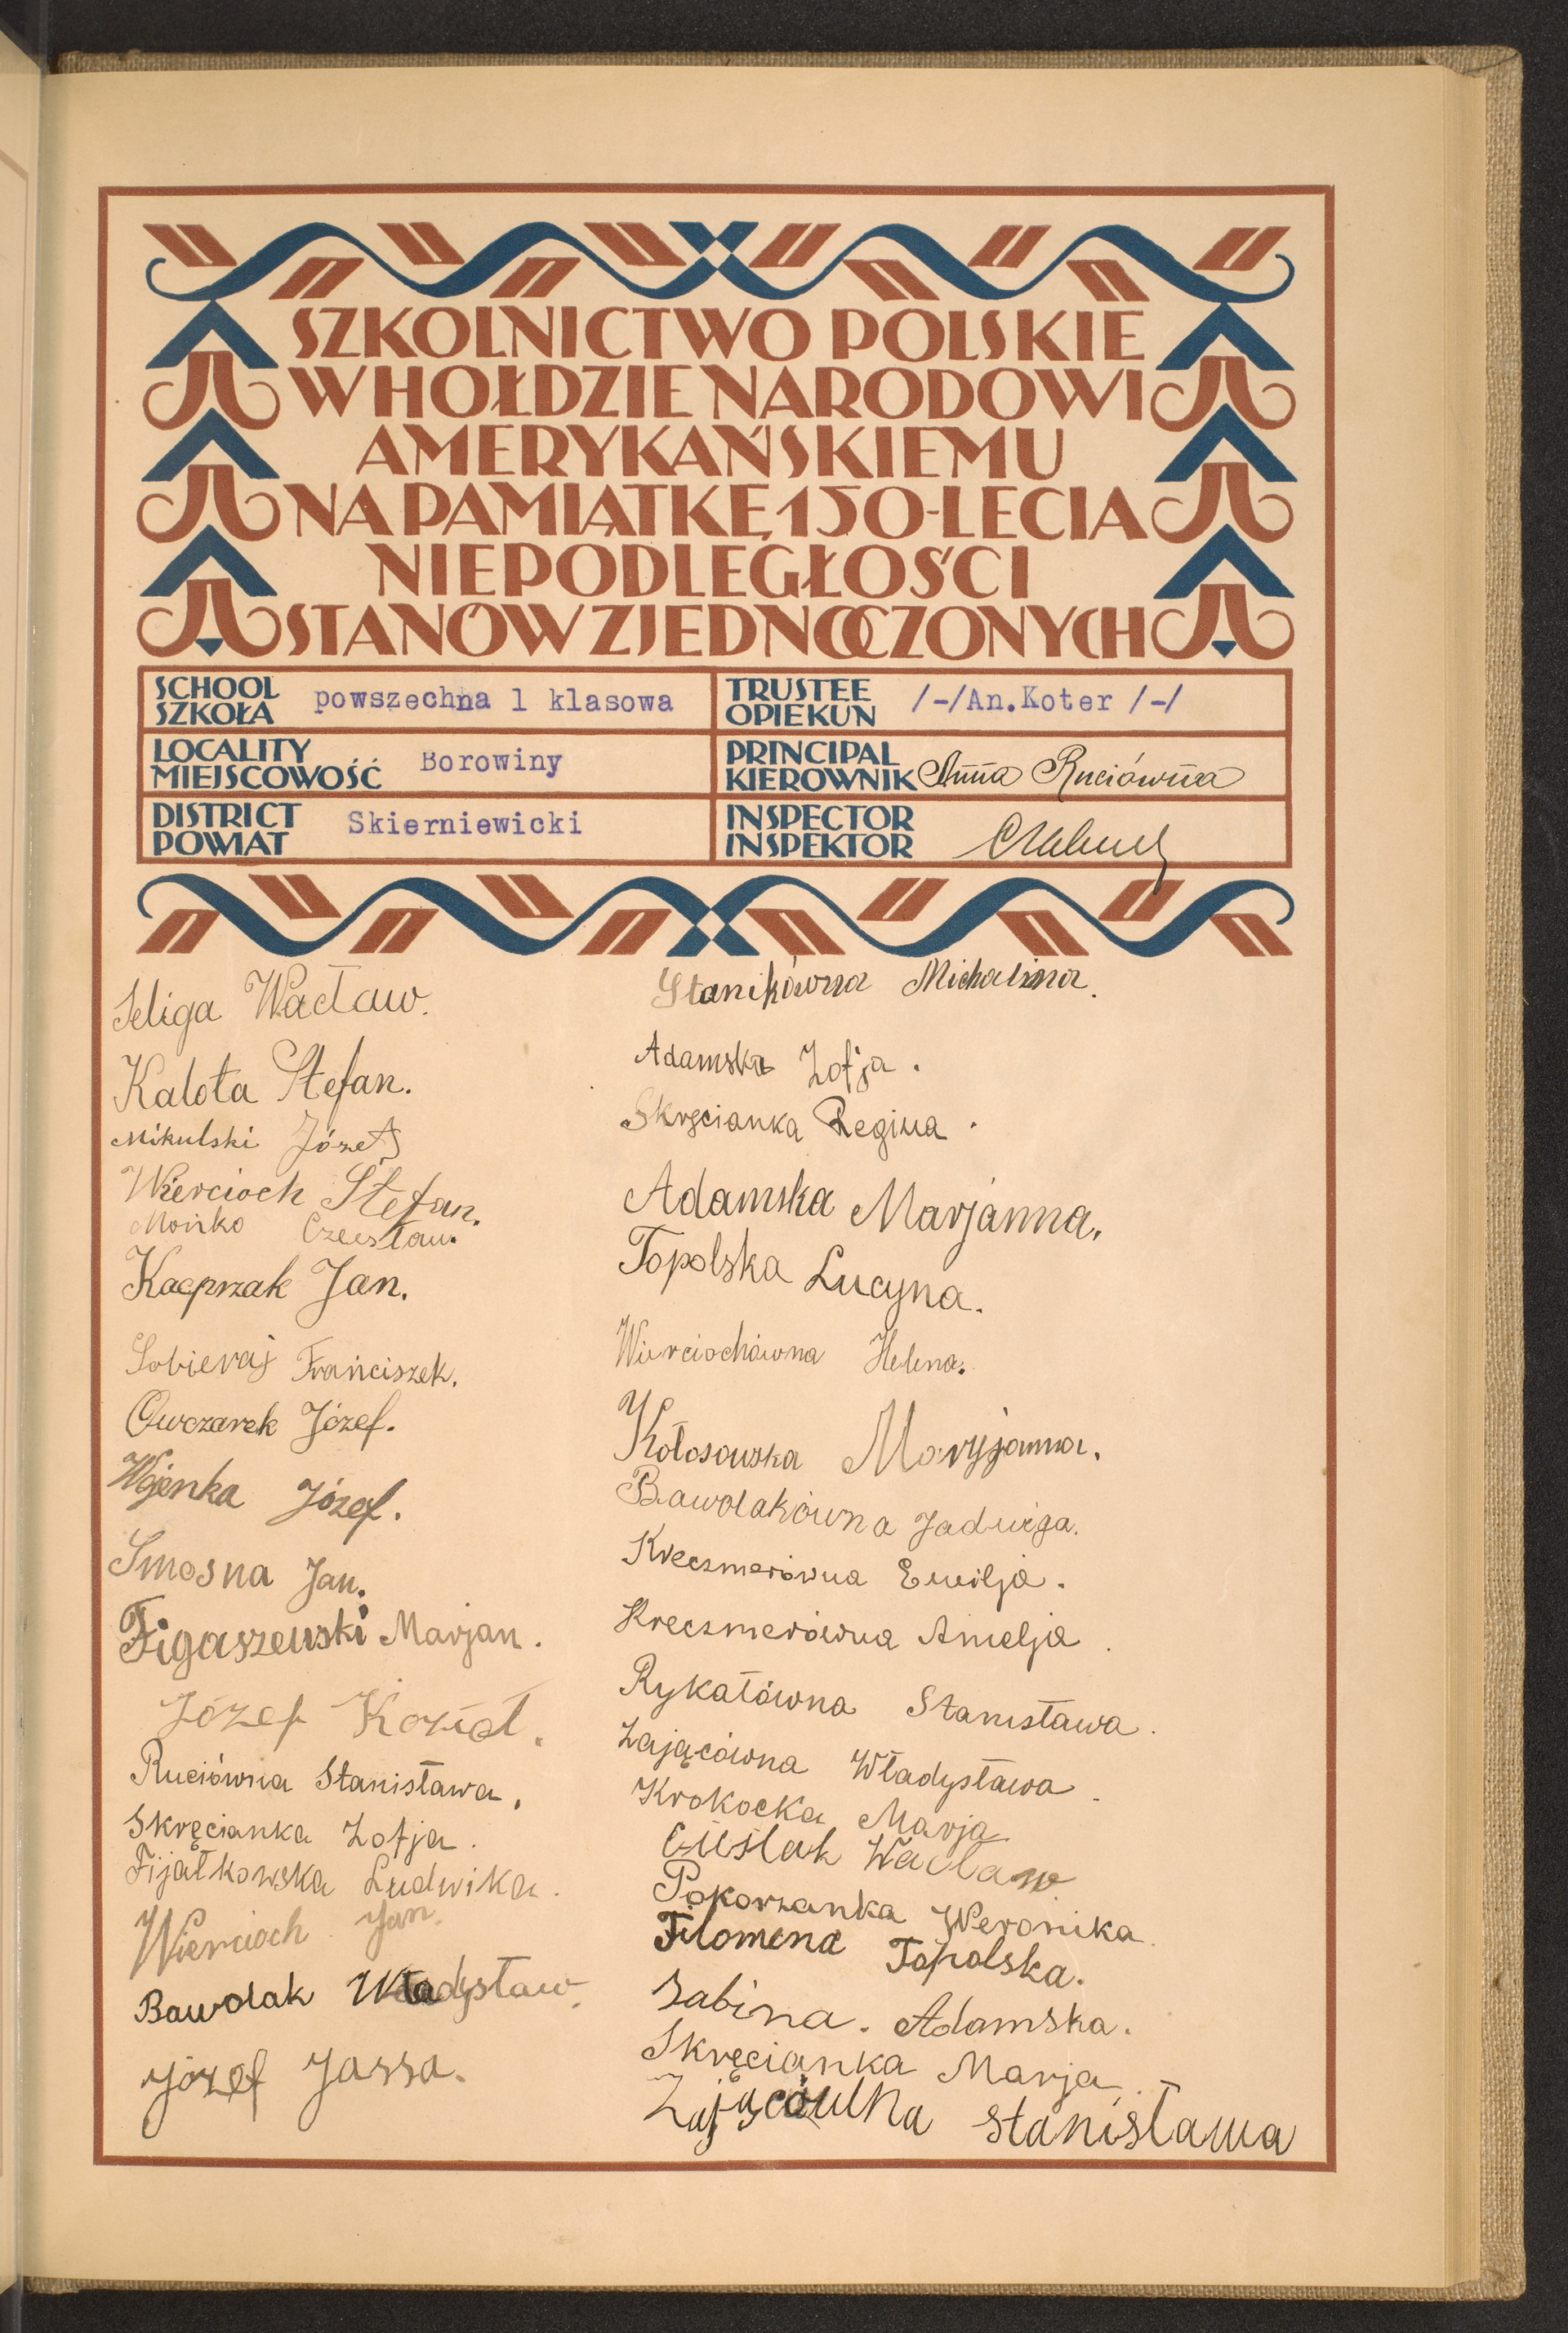 SZKOLNICTWO POLSKIE
W HOŁDZIE NARODOWI
AMERYKAŃSKIEMU
NA PAMIĄTKĘ 150-LECIA
NIEPODLEGŁOŚCI
STANÓW ZJEDNOCZONYCH
SCHOOL
SZKOŁA
powszechna 1 klasowa
TRUSTEE
OPIEKUN
/-/An.Koter /-/
LOCALITY
MIEJSCOWOŚĆ
Borowiny
PRINCIPAL
KIEROWNIK
Anna Ruciówna
DISTRICT
POWIAT
Skierniewicki
INSPECTOR
INSPEKTOR
Seliga Wacław.
Kalota Stefan.
Mikulski Józef
Wiercioch Stefan.
Mońko Czesław.
Kacprzak Jan.
Sobieraj Franciszek.
Owczarek Józef.
Wojenka Józef.
Smosna Jan.
Figaszewski Marjan.
Józef Kozioł.
Ruciówna Stanisława.
Skręcianka Zofja.
Fijałkowska Ludwika.
Wiercioch Jan.
Bawolak Władysław.
Józef Jassa.
Stanikówna Michalina.
Adamska Zofja.
Skręcianka Regina.
Adamska Marjanna.
Topolska Lucyna.
Wierciochówna Helena.
Kołosowska Maryjanna.
Bawolakówna Jadwiga.
Kreczmerówna Emilja.
Kreczmerówna Amelja.
Rykałówna Stanisława.
Zającówna Władysława.
Krokocka Marja
Cieślak Wacław
Pokorzanka Weronika.
Filomena Topolska.
Sabina. Adamska.
Skręcianka Marja.
Zającówna Stanisława